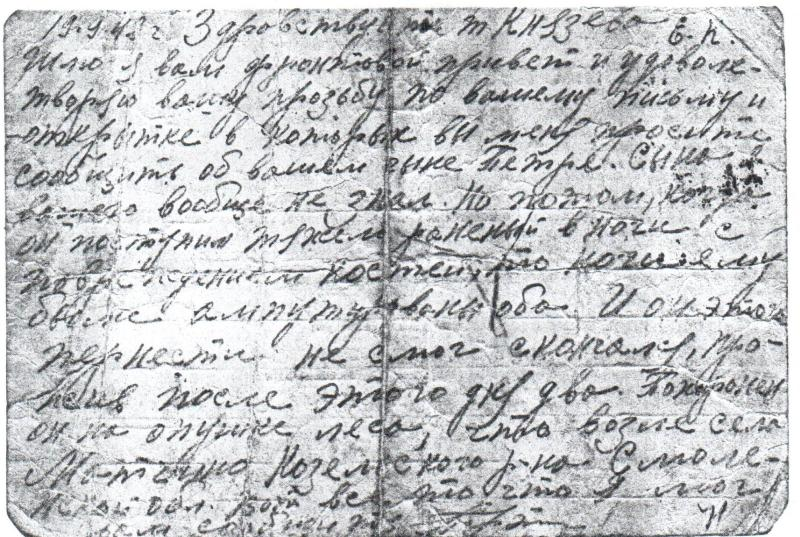 19.9.43 г Здравствуйте т Князева Е.П.
Шлю я вам фронтовой привет и удовле-
творяю вашу прозьбу по вашему письму и
открытке в которых вы меня просите
сообщить об вашем сыне Петре. Сына
вашего вообще не знал. Но потом, когда
он поступил тежело раненый в ноги с
повреждением костей, то ноги ему
были ампутурованы оба. И он этого
пернести не смог скончался, про-
жив после этого дня два. Похоронен
он на опушке леса, что возле села
Козельского р-на Смоле-
нской обл. Вот все то что я мог
вам сообщить.